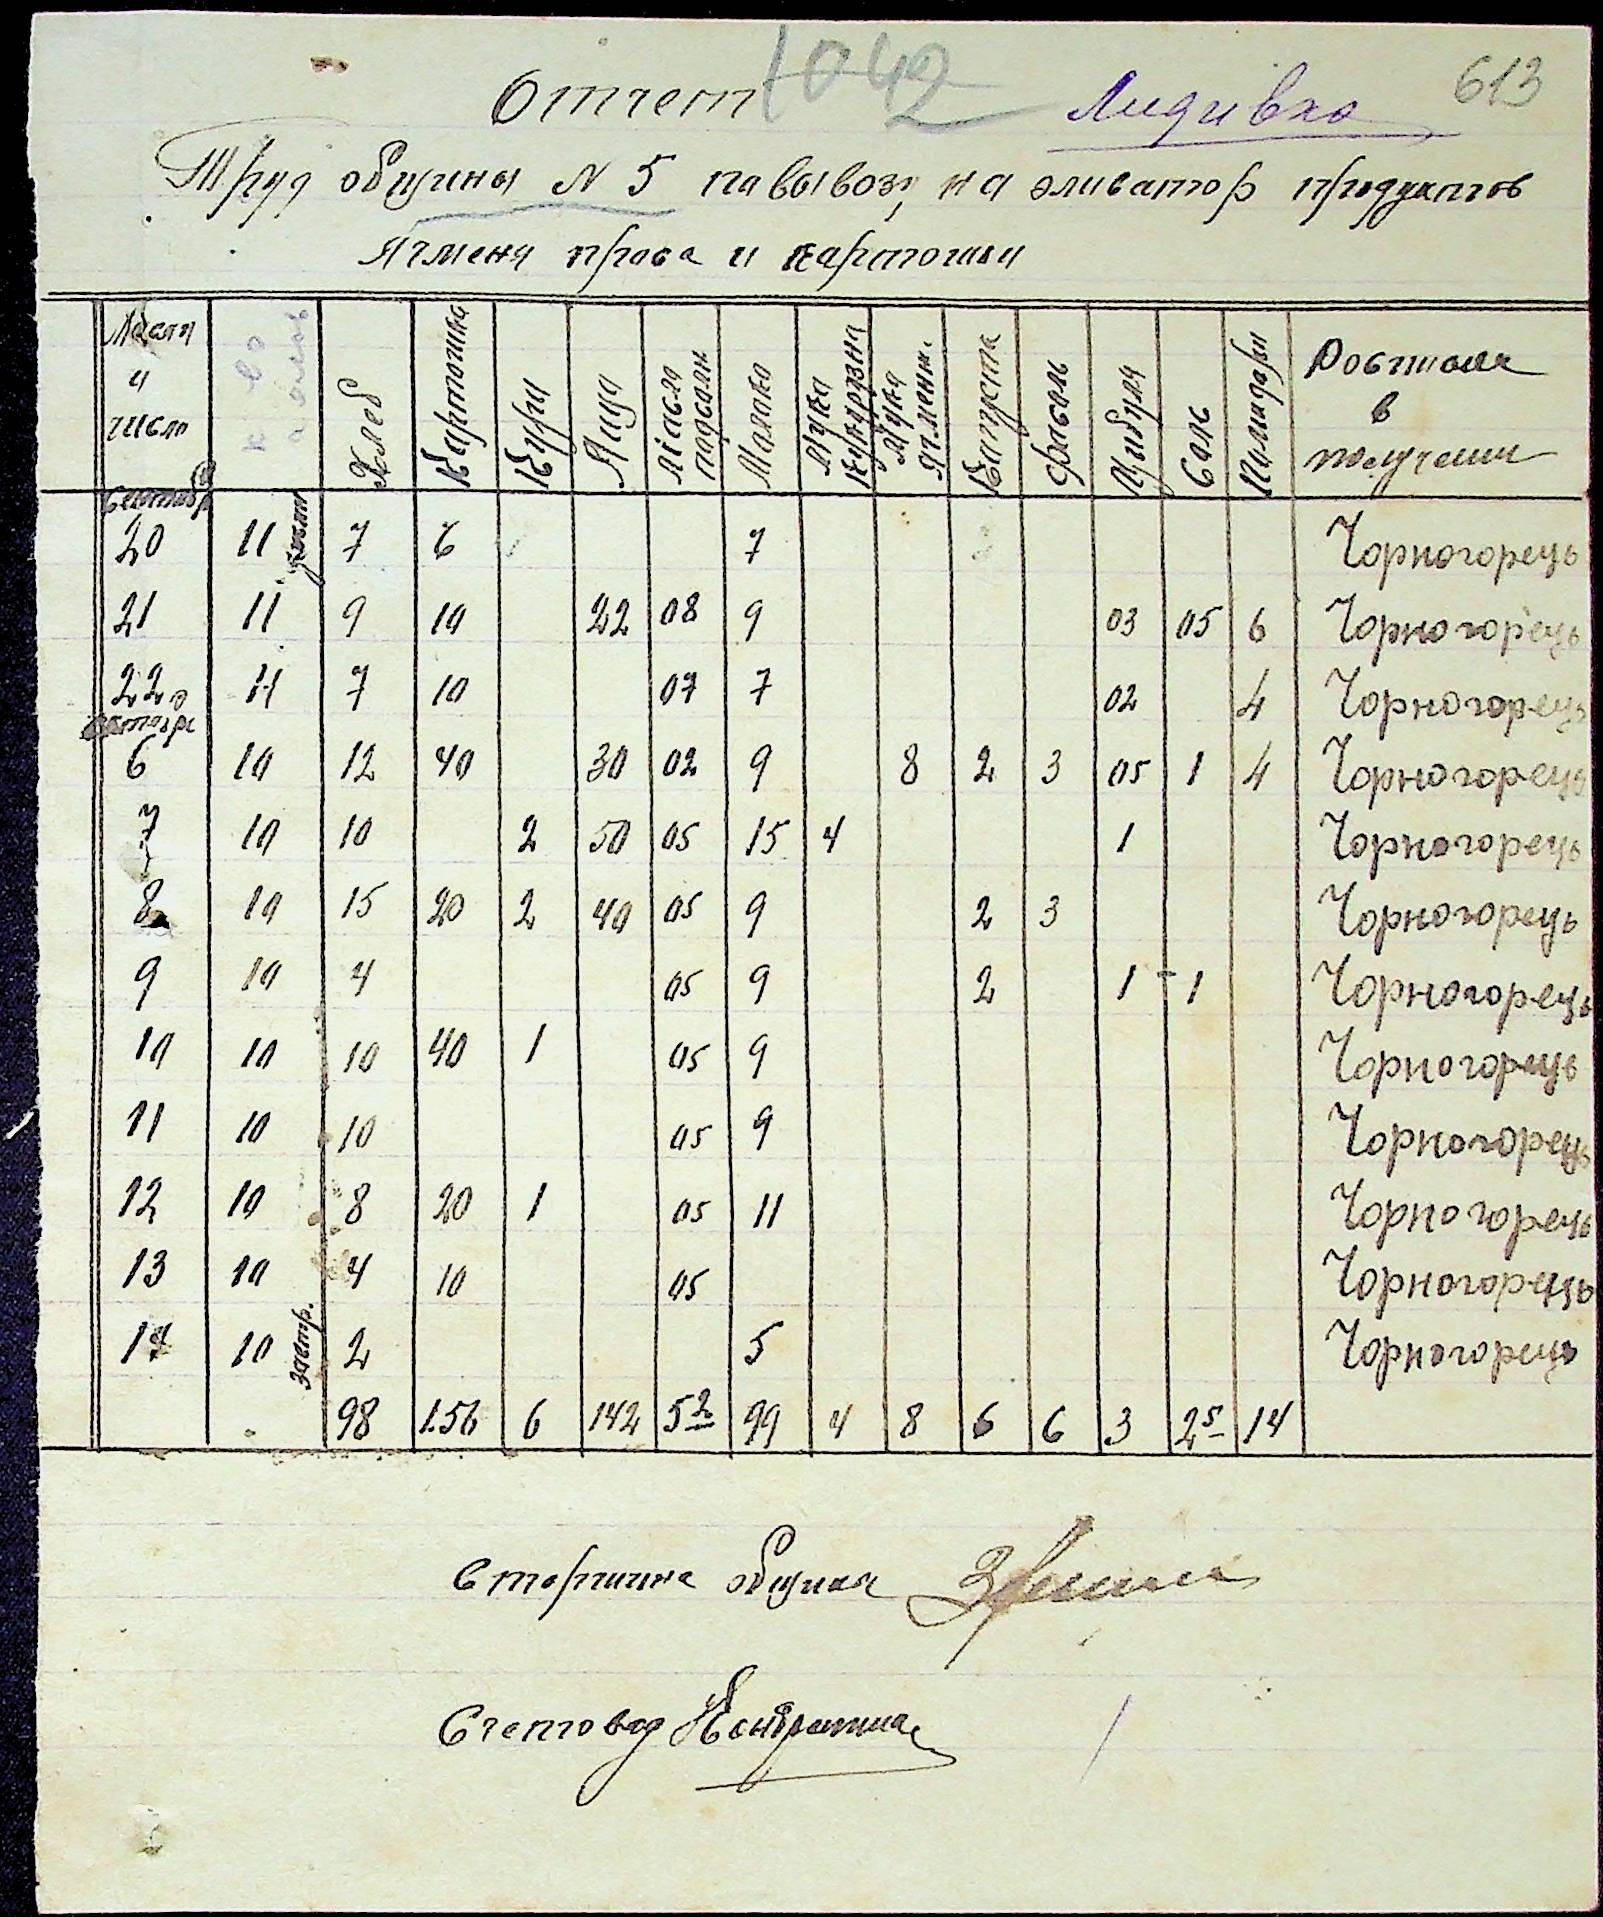 1042
613
Отчет
Лидивка
Труд общины N 5 павывозу на эливатор продуктов
Ячменя проса и картошки
Месяц и число
к во
Хлеб
Картошка
Кури
Яица
Масло падсолн
Малако
Мука кукурузна
Мука ячменн.
Капуста
Фасоль
Цибуля
Соль
Памидари
Росписка в получении
Сентябр
20 11 7 6 7 Чорногорець
21 11 9 10 22 08 9 03 05 6 Чорногорець
22 11 7 10 07 7 02 4 Чорногорець
Октябр
6 10 12 40 30 02 9 8 2 3 05 1 4 Чорногорець
7 10 10 2 50 05 15 4 1 Чорногорець
8 10 15 20 2 40 05 9 2 3 Чорногорець
9 10 4 05 9 2 1 - 1 Чорногорець
10 10 10 40 1 05 9 Чорногорець
11 10 10 05 9 Чорногорець
12 10 8 20 1 05 11 Чорногорець
13 10 4 10 05 Чорногорець
14 10 завтр. 2 5 Чорногорець
98 156 6 142 52 99 4 8 6 6 3 25 14
Старшина общины
Счетовод